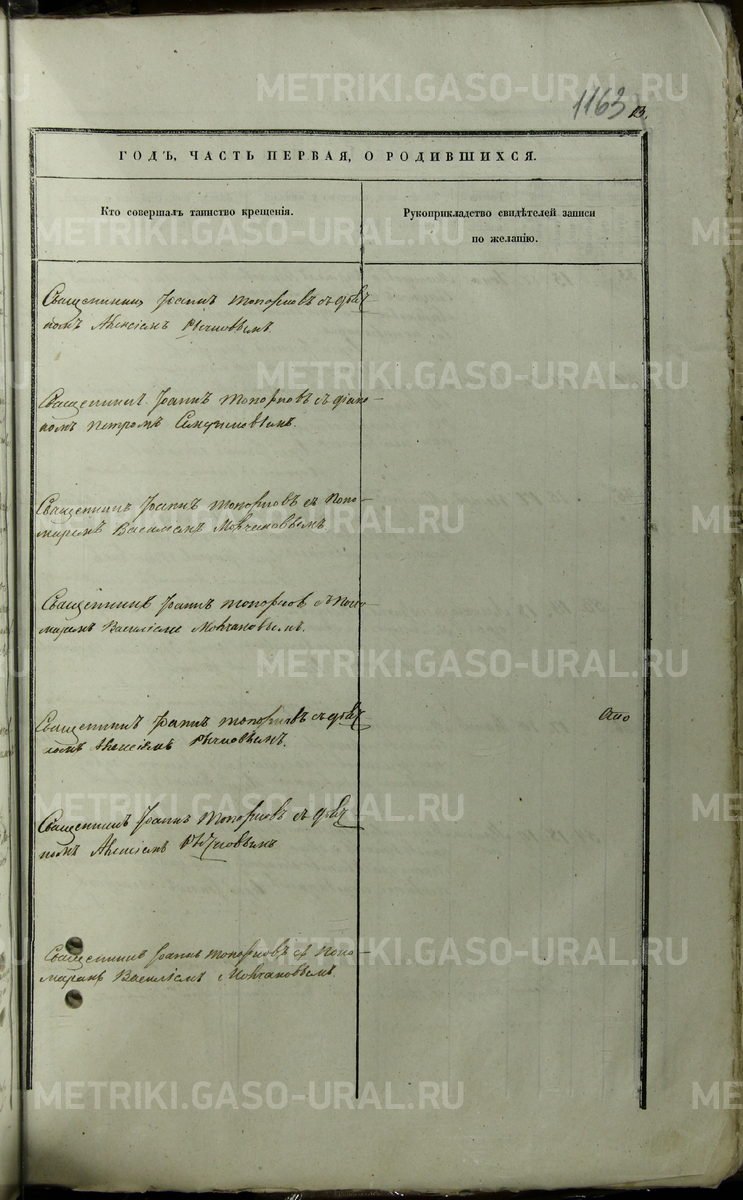 1163
13.
ГОДЪ, ЧАСТЬ ПЕРВАЯ, О РОДИВШИХСЯ.
Кто совершалъ таинство крещенія.
Рукоприкладство свидѣтелей записи
по желанію.
Священникъ Іоаннъ Топорковъ съ дья-
комъ Алексіемъ
Священникъ Іоаннъ Топорковъ съ діако-
номъ Петромъ
Священникъ Іоаннъ Топорковъ съ Поно-
маремъ Василіемъ Молчановымъ
Священникъ Іоаннъ Топорковъ съ Поно-
маремъ Василіемъ Молчановымъ.
Священникъ Іоаннъ Топорковъ съ
Алексіемъ
Священникъ Іоаннъ Топорковъ съ
Алексіемъ
Священникъ Іоаннъ Топорковъ съ Поно-
маремъ Василіемъ Молчановымъ.
METRIKI.GASO-URAL.RU